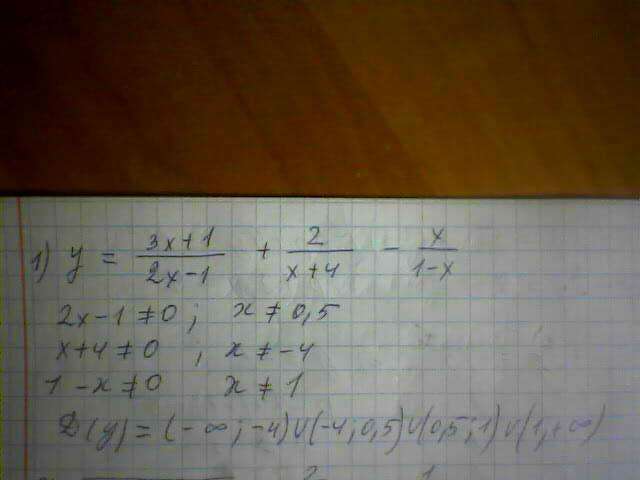 1) y = (3x+1)/(2x-1) + 2/(x+4) - x/(1-x)
2x-1≠0; x≠0,5
x+4≠0, x≠-4
1-x≠0 x≠1
D(y)=(-∞;-4)∪(-4;0,5)∪(0,5;1)∪(1,+∞)